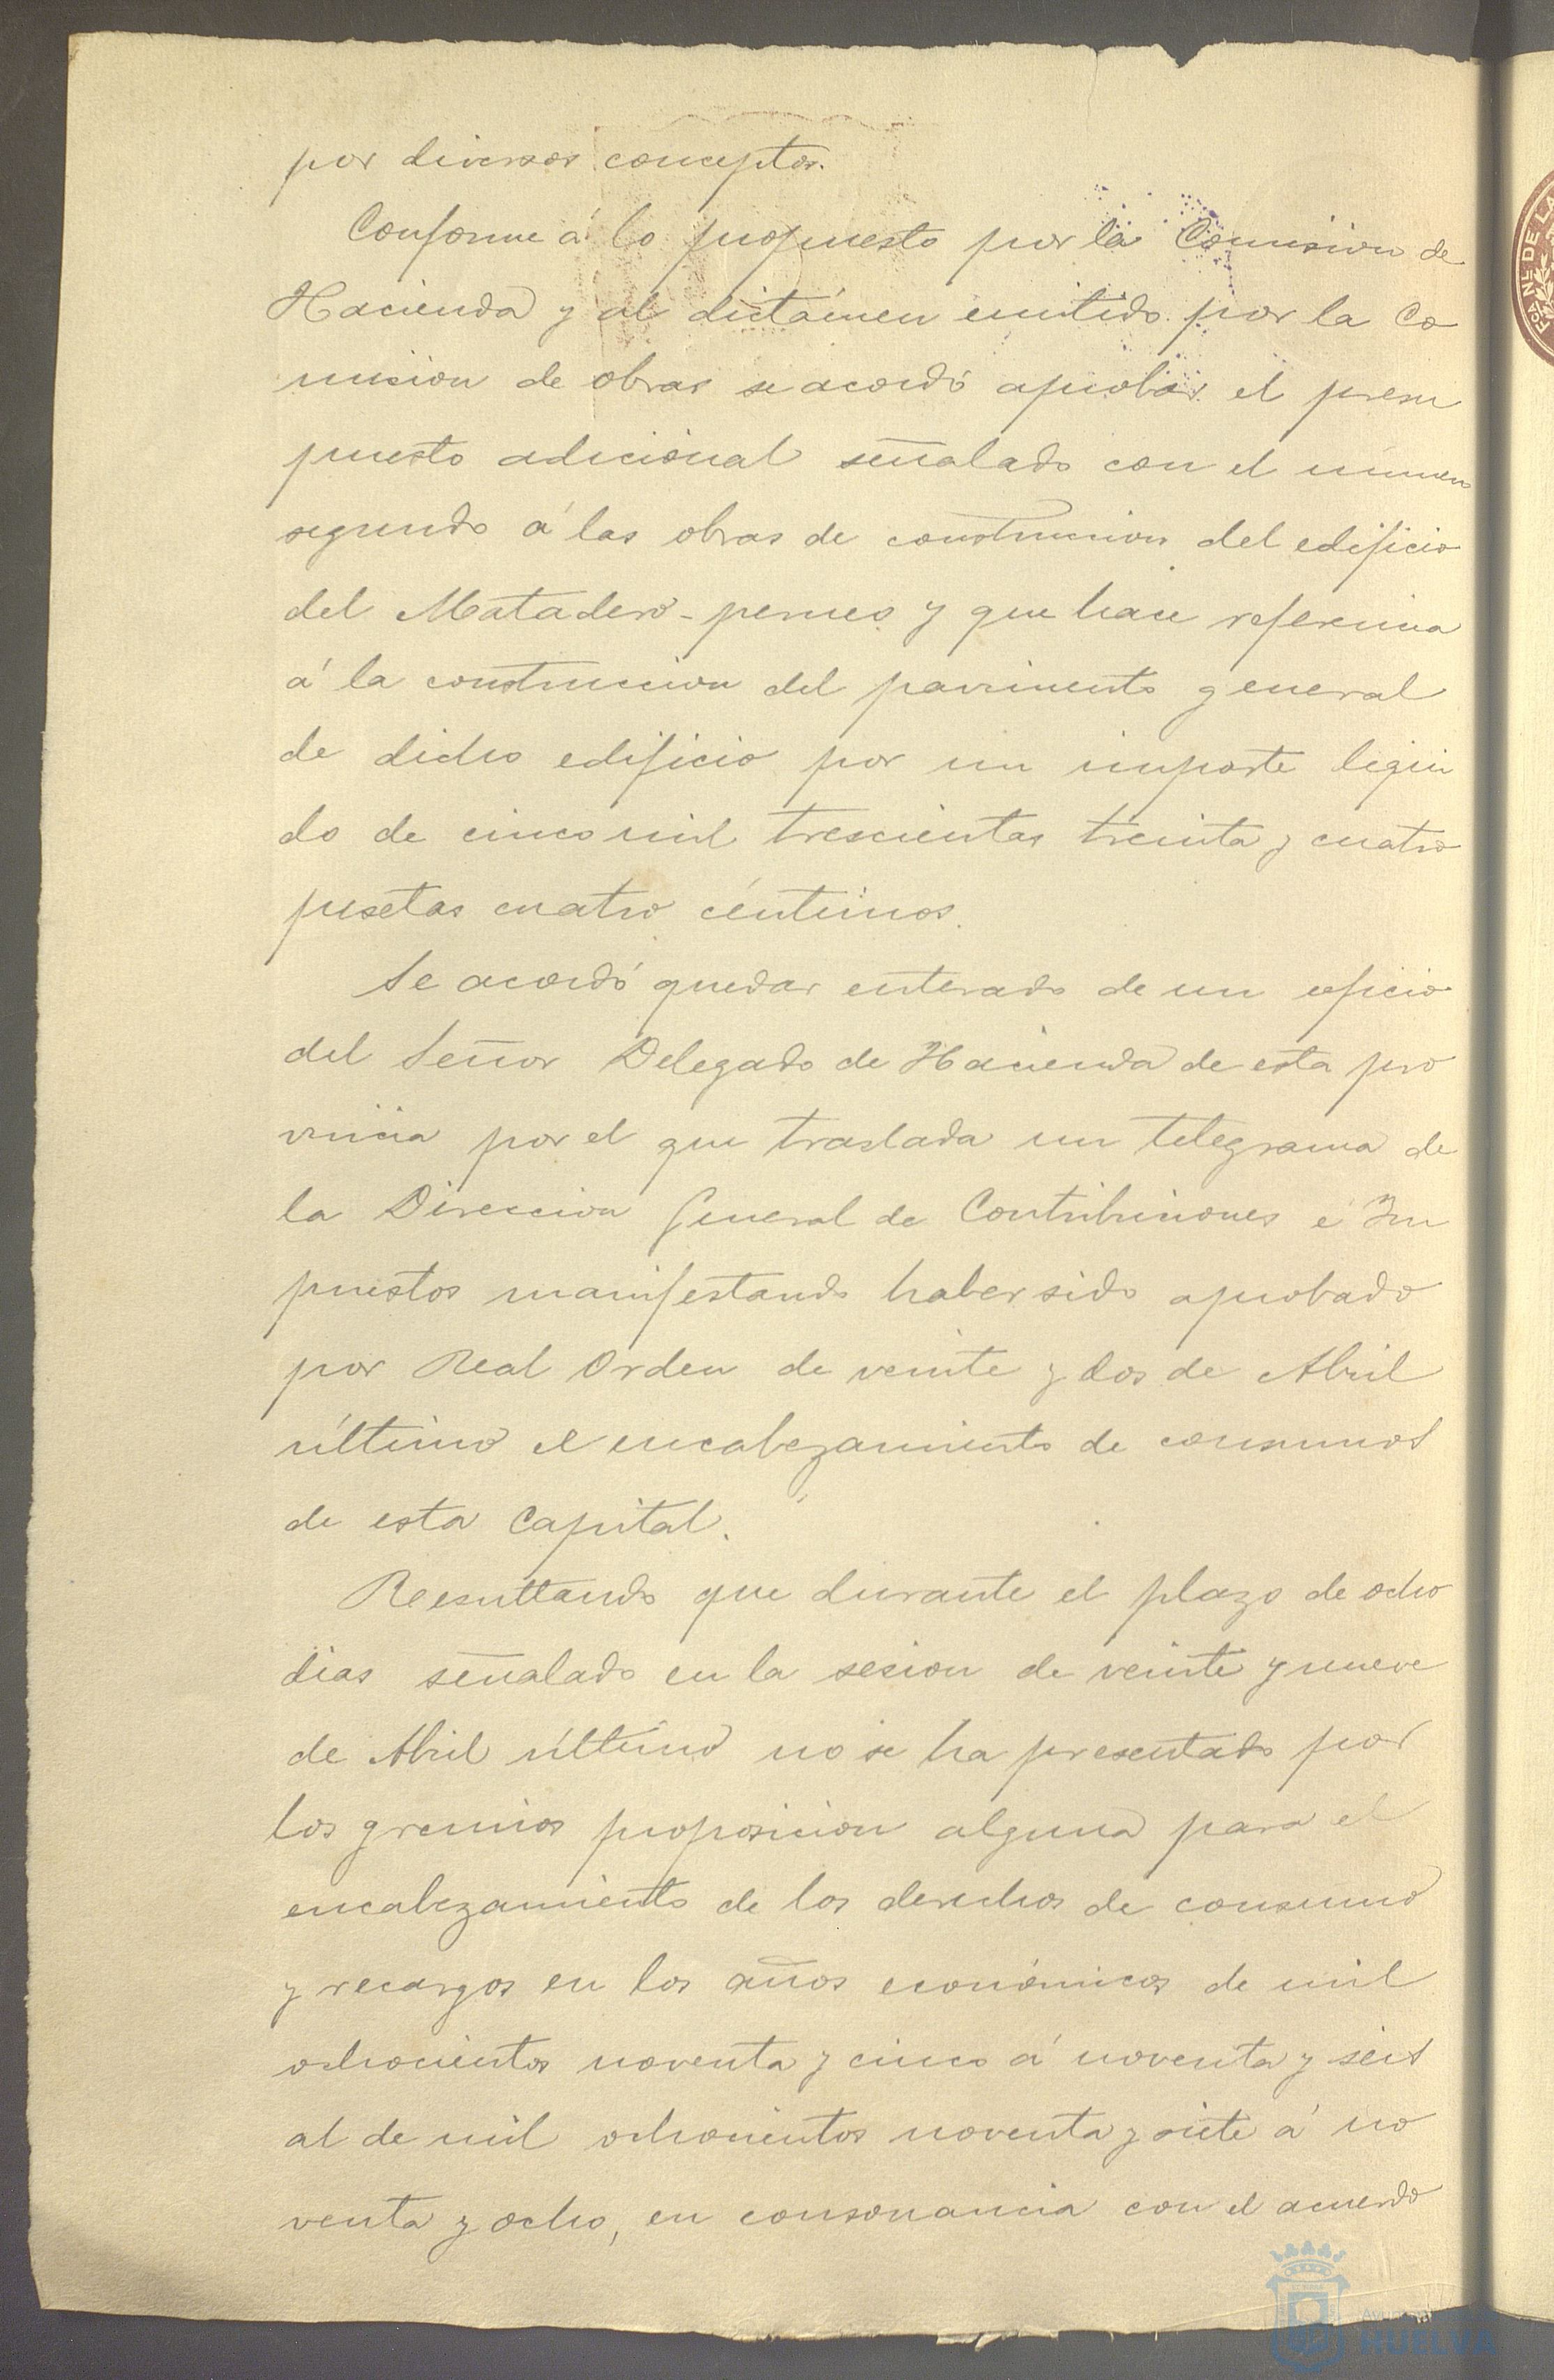 por diversos conceptos.
Conforme á lo propuesto por la Comision de
Hacienda y al dictámen emitido por la Co
mision de obras se acordó aprobar el presu
puesto adicional señalado con el número
segundo á las obras de construccion del edificio
del Matadero-perneo y que hace referencia
á la construccion del pavimento general
de dicho edificio por un importe liqui
do de cinco mil trescientas treinta y cuatro
pesetas cuatro céntimos.
Se acordó quedar enterado de un oficio
del Señor Delegado de Hacienda de esta pro
vincia por el que traslada un telegrama de
la Direccion General de Contribuciones é Im
puestos manifestando haber sido aprobado
por Real Orden de veinte y dos de Abril
último el encabezamiento de consumos
de esta Capital.
Resultando que durante el plazo de ocho
dias señalado en la sesion de veinte y nueve
de Abril último no se ha presentado por
los gremios proposicion alguna para el
encabezamiento de los derechos de consumo
y recargos en los años económicos de mil
ochocientos noventa y cinco á noventa y seis
al de mil ochocientos noventa y siete á no
venta y ocho, en consonancia con el acuerdo
HUELVA